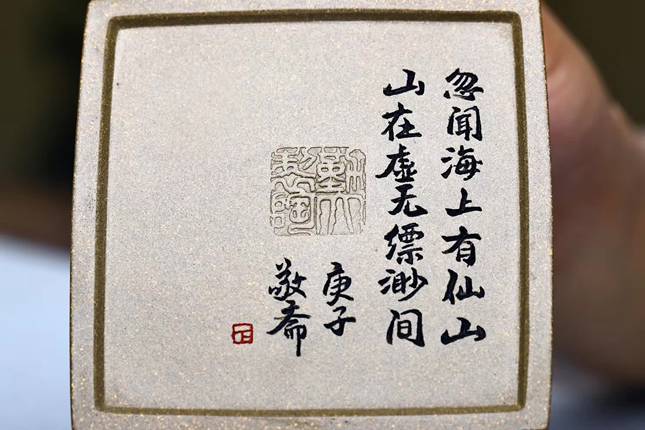 忽闻海上有仙山
山在虚无缥渺间
庚子
敬斋